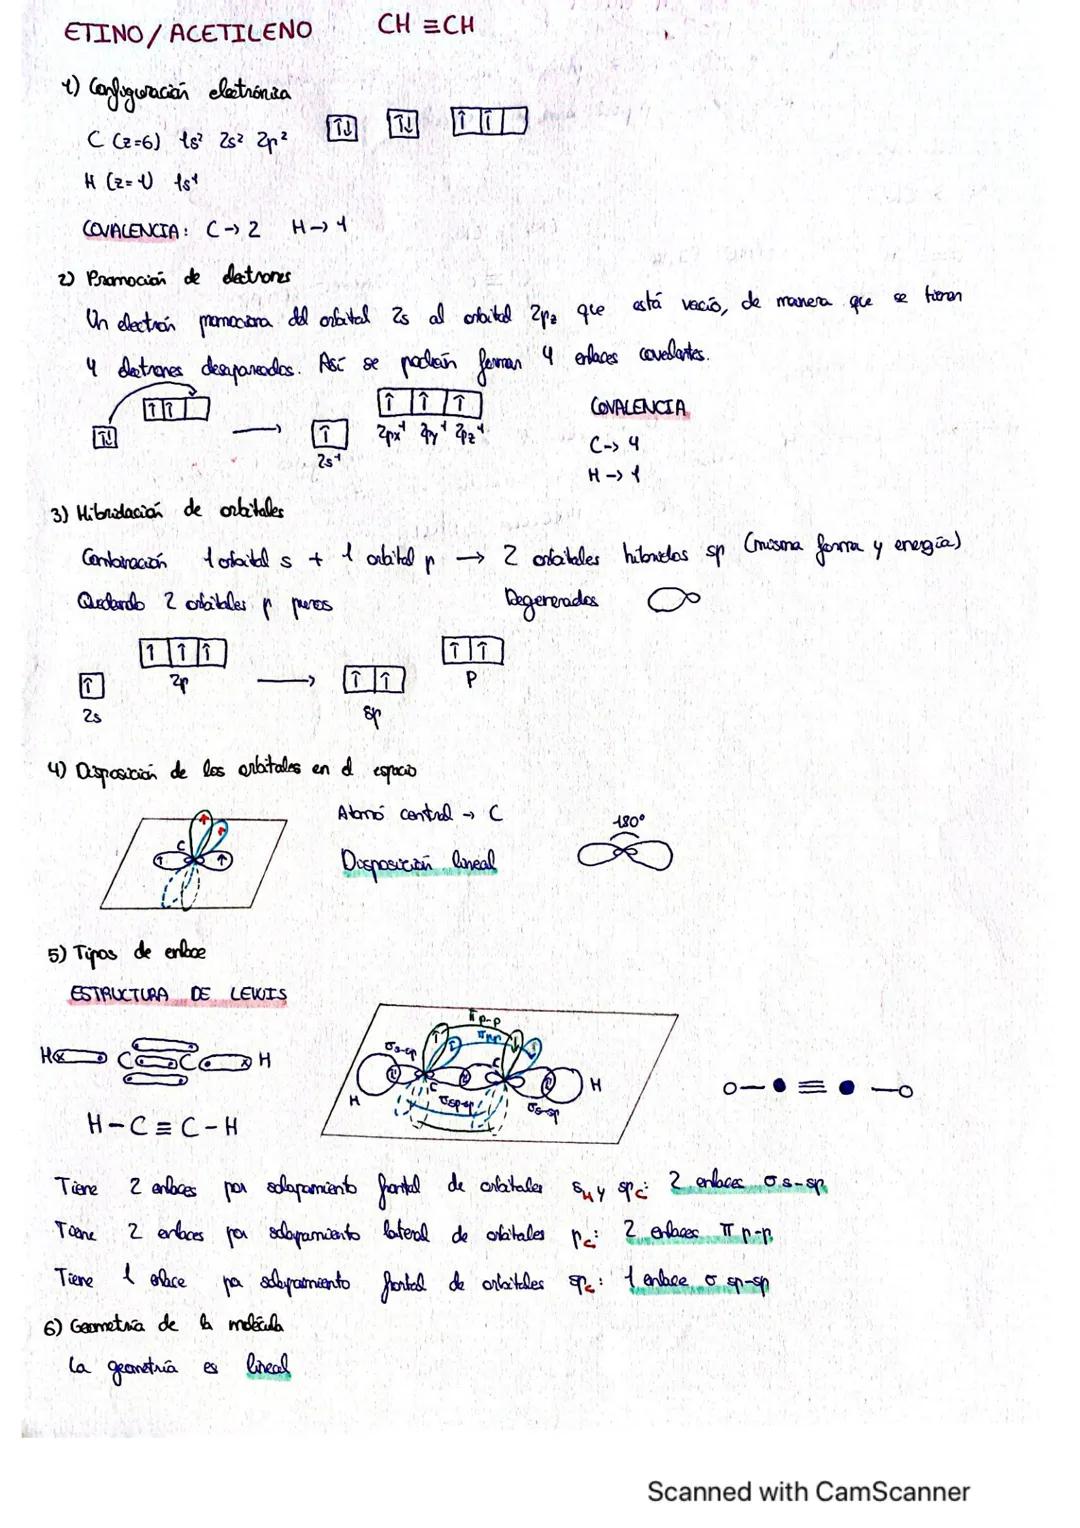 ETINO/ACETILENO CH≡CH
1) Configuración electrónica
C (z=6) 1s² 2s² 2p²
H (z=1) 1s¹
COVALENCIA: C→2 H→1
2) Promoción de electrones
Un electrón promociona del orbital 2s al orbital 2pz que está vacío, de manera que se tienen
4 electrones desapareados. Así se podrán formar 4 enlaces covalentes.
2s¹ 2px¹ 2py¹ 2pz¹
COVALENCIA
C→4
H→1
3) Hibridación de orbitales
Combinación 1 orbital s + 1 orbital p → 2 orbitales híbridos sp (misma forma y energía)
Quedando 2 orbitales p puros Degenerados
2s 2p sp p
4) Disposición de los orbitales en el espacio
C
Atomó central → C
Disposición lineal
180°
5) Tipos de enlace
ESTRUCTURA DE LEWIS
Hx C C x H
H-C≡C-H
π p-p
π p-p
σs-sp
H C C H
σsp-sp
σs-sp
Tiene 2 enlaces por solapamiento frontal de orbitales sH y spC: 2 enlaces σ s-sp
Tiene 2 enlaces por solapamiento lateral de orbitales pC: 2 enlaces π p-p
Tiene 1 enlace por solapamiento frontal de orbitales spC: 1 enlace σ sp-sp
6) Geometría de la molécula
La geometría es lineal
Scanned with CamScanner